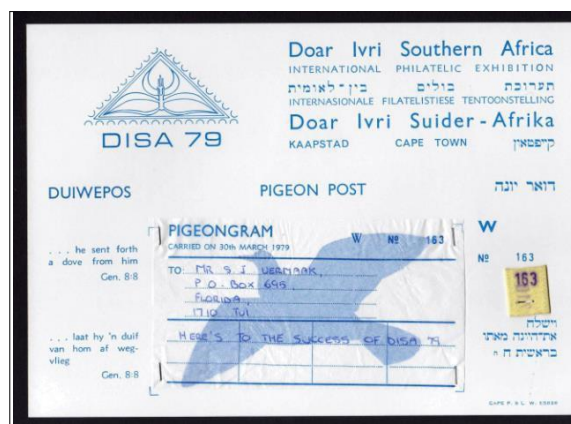 Doar Ivri Southern Africa
INTERNATIONAL PHILATELIC EXHIBITION
תערוכת בולים בין־לאומית
INTERNASIONALE FILATELISTIESE TENTOONSTELLING
Doar Ivri Suider-Afrika
KAAPSTAD CAPE TOWN קייפטאון
DISA 79
DUIWEPOS PIGEON POST דואר יונה
. . . he sent forth
a dove from him
Gen. 8:8
. . . laat hy 'n duif
van hom af weg-
vlieg
Gen. 8:8
PIGEONGRAM
CARRIED ON 30th MARCH 1979 W Nº 163
TO: MR S J VERMAAK,
P O. BOX 695,
FLORIDA,
1710 TVL
HERE'S TO THE SUCCESS OF DISA 79
W
Nº 163
163
וישלח
את־היונה מאתו
בראשית ח ח
CAPE P. & L. W.